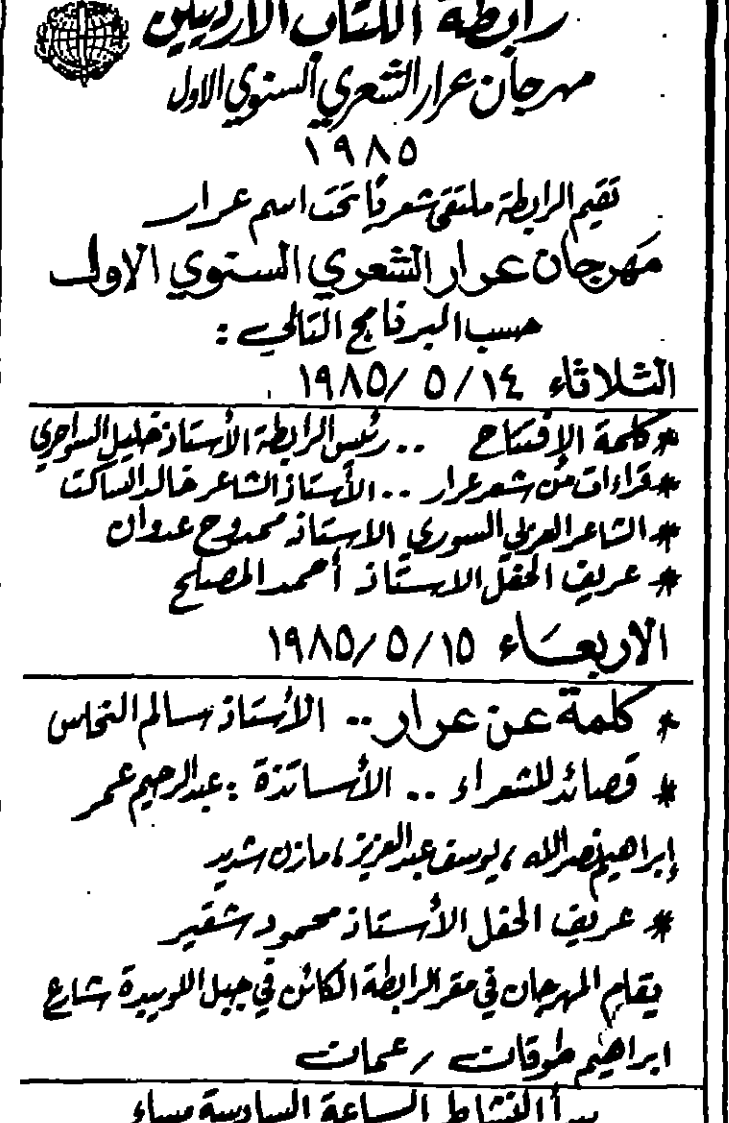 رابطة الكتاب الأردنيين
مهرجان عرار الشعري السنوي الاول
١٩٨٥
تقيم الرابطة ملتقى شعريًا تحت اسم عرار
مهرجان عرار الشعري السنوي الاول
حسب البرنامج التالي :
الثلاثاء ١٤/ ٥ /١٩٨٥
* كلمة الإفتتاح .. رئيس الرابطة الأستاذ خليل السواحري
* قراءات من شعر عرار .. الأستاذ الشاعر خالد الساكت
* الشاعر العربي السوري الاستاذ ممدوح عدوان
* عريف الحفل الاستاذ أحمد المصلح
الاربعاء ١٥/ ٥ /١٩٨٥
* كلمة عن عرار .. الأستاذ سالم النحاس
* قصائد للشعراء .. الأساتذة : عبدالرحيم عمر
إبراهيم نصرالله ، يوسف عبدالعزيز ، مازن شديد
* عريف الحفل الأستاذ محمود شقير
يقام المهرجان في مقر الرابطة الكائن في جبل اللويبدة شارع
ابراهيم طوقان / عمان
يبدأ النشاط الساعة السادسة مساء